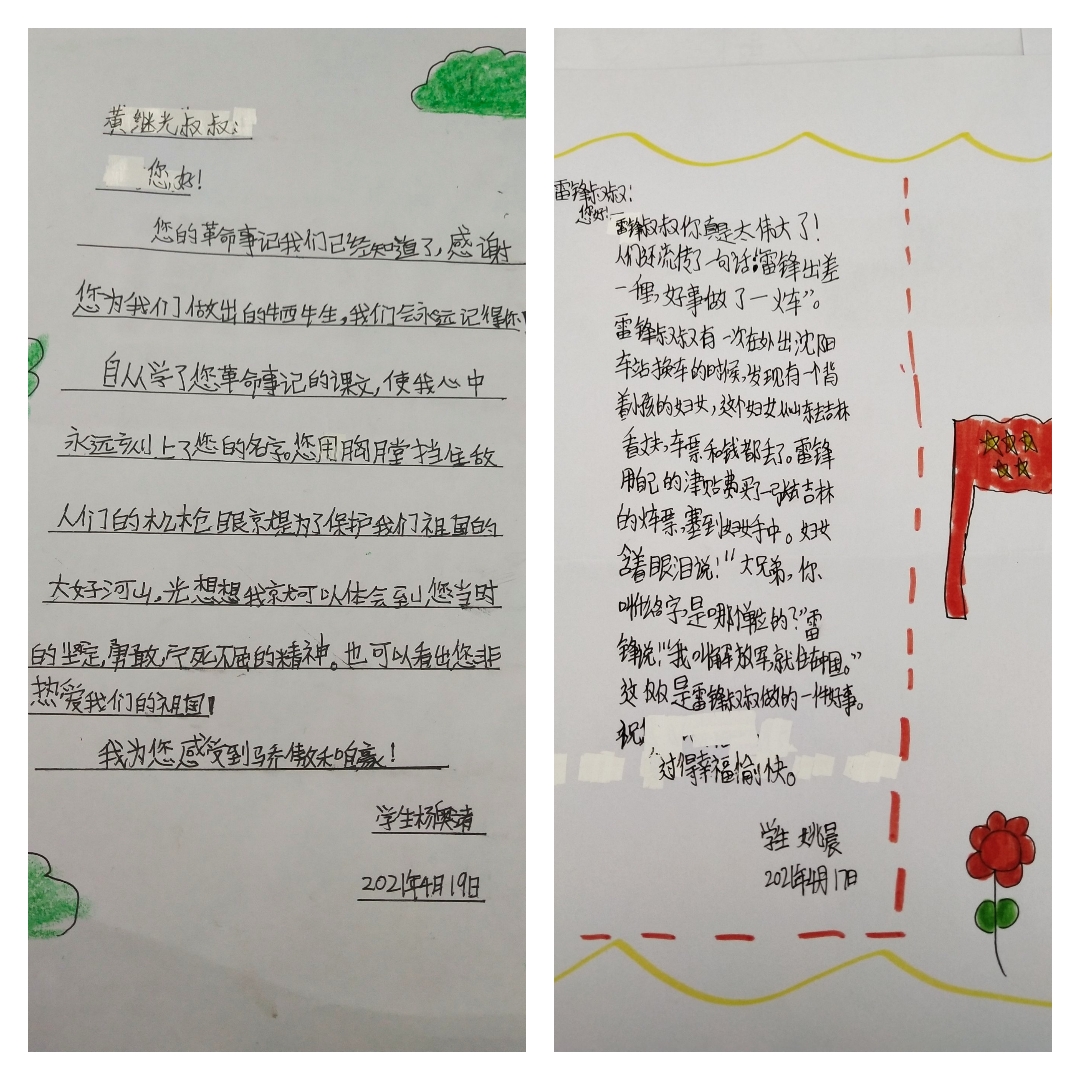 黄继光叔叔:
您好!
您的革命事记我们已经知道了,感谢
您为我们做出的牺牲,我们会永远记得你!
自从学了您革命事记的课文,使我心中
永远刻上了您的名字。您用胸膛挡住敌
人们的机枪眼,就是为了保护我们祖国的
大好河山,光想想我就可以体会到您当时
的坚定,勇敢,宁死不屈的精神。也可以看出您非
热爱我们的祖国!
我为您感受到骄傲和自豪!
学生杨奥靖
2021年4月19日
雷锋叔叔:
您好!
雷锋叔叔你真是太伟大了!
人们还流传了一句话:“雷锋出差
一里,好事做了一火车”。
雷锋叔叔有一次在外出沈阳
车站换车的时候,发现有一个背
着小孩的妇女,这个妇女从山东去吉林
看丈夫,车票和钱都丢了。雷锋
用自己的津贴费买了一张去吉林
的火车票,塞到妇女手中。妇女
含着眼泪说:“大兄弟,你
叫什么名字,是哪个单位的?”雷
锋说:“我叫解放军,就住在中国。”
这仅仅是雷锋叔叔做的一件好事。
祝:
过得幸福愉快。
学生 姚晨
2021年4月17日